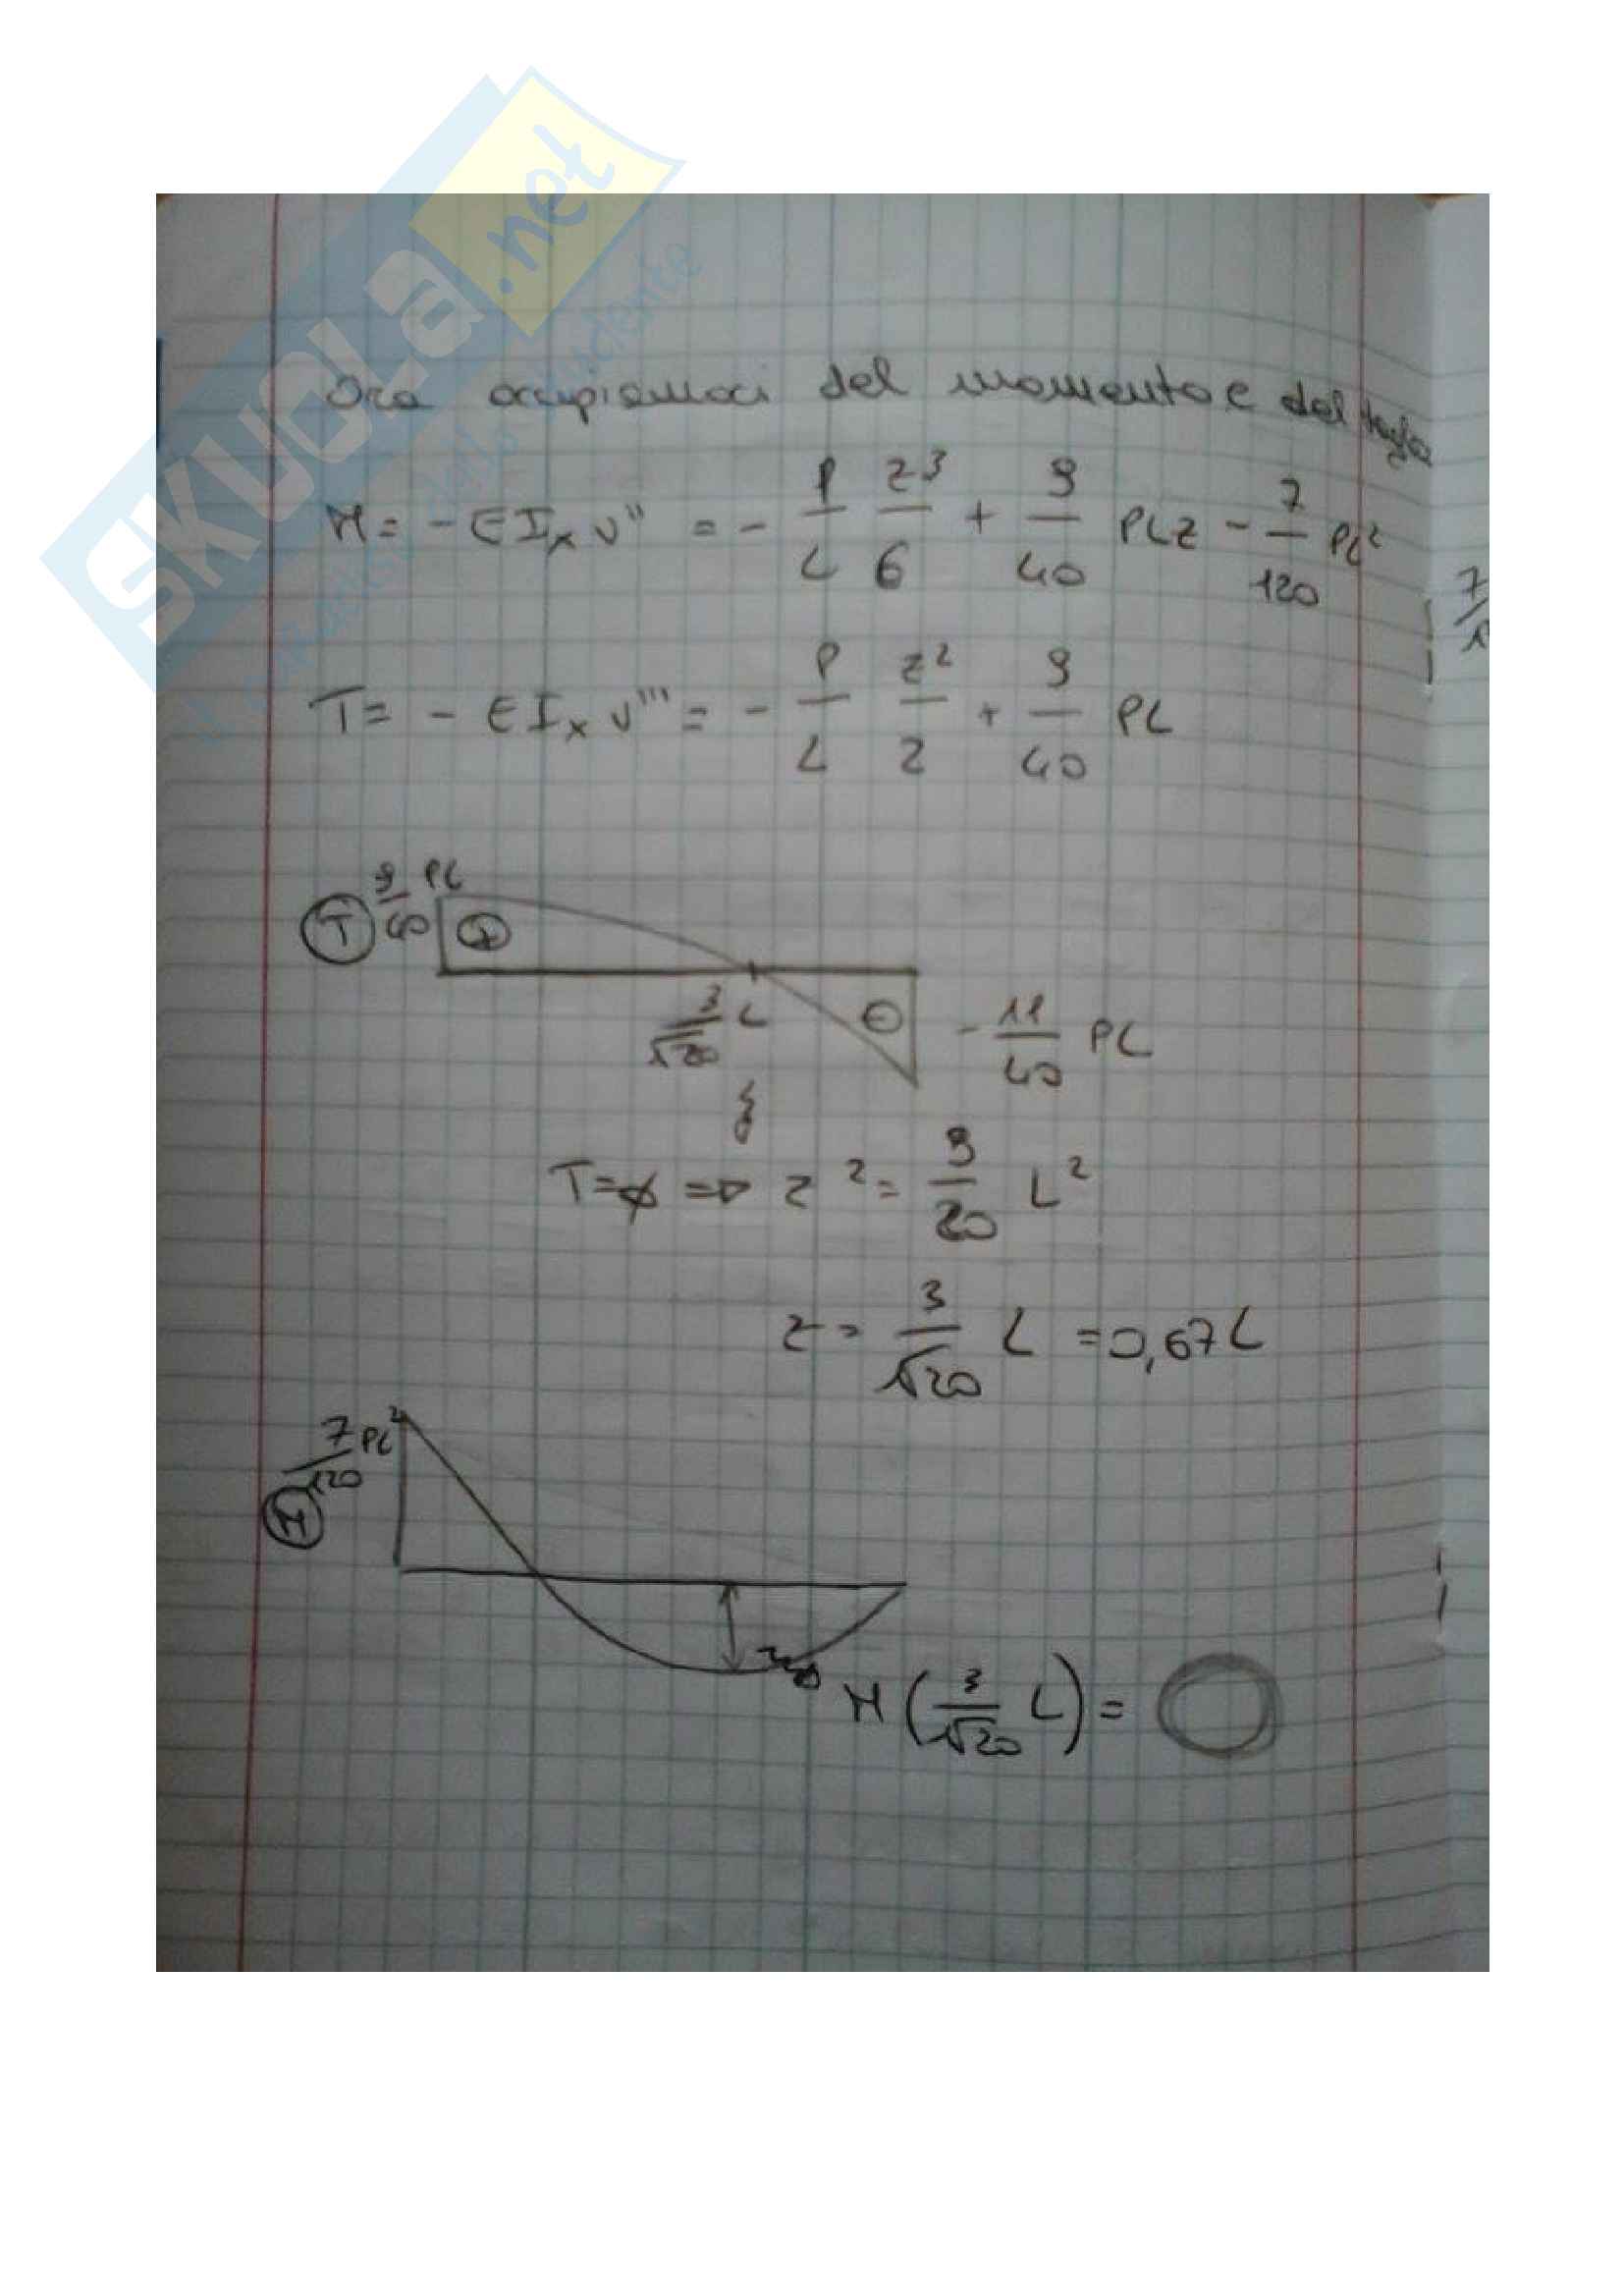 SKUOLA.net
Ora occupiamoci del momento e del taglio
M = - EIx v'' = - P/L z³/6 + 9/40 PLz - 7/120 PL²
T = - EIx v''' = - P/L z²/2 + 9/40 PL
T 9/40 PL +
3/√20 L - - 11/40 PL
T = 0 => z² = 9/20 L²
z = 3/√20 L = 0,67 L
M 7/120 PL²
M (3/√20 L) =